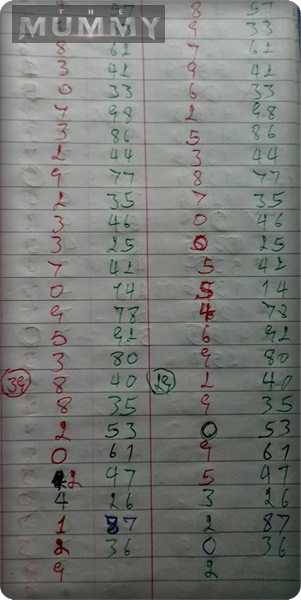 THE
MUMMY
57 8 57
9 33
8 62 7 62
3 42 9 42
0 33 6 33
7 98 2 98
3 86 5 86
2 44 3 44
9 77 8 77
2 35 7 35
3 46 0 46
3 25 0 25
7 42 5 42
0 14 5 14
9 78 4 78
5 92 6 92
3 80 9 80
39 8 40 29 2 40
8 35 9 35
2 53 0 53
0 61 9 61
2 47 5 47
4 26 3 26
1 87 2 87
2 36 0 36
9 2